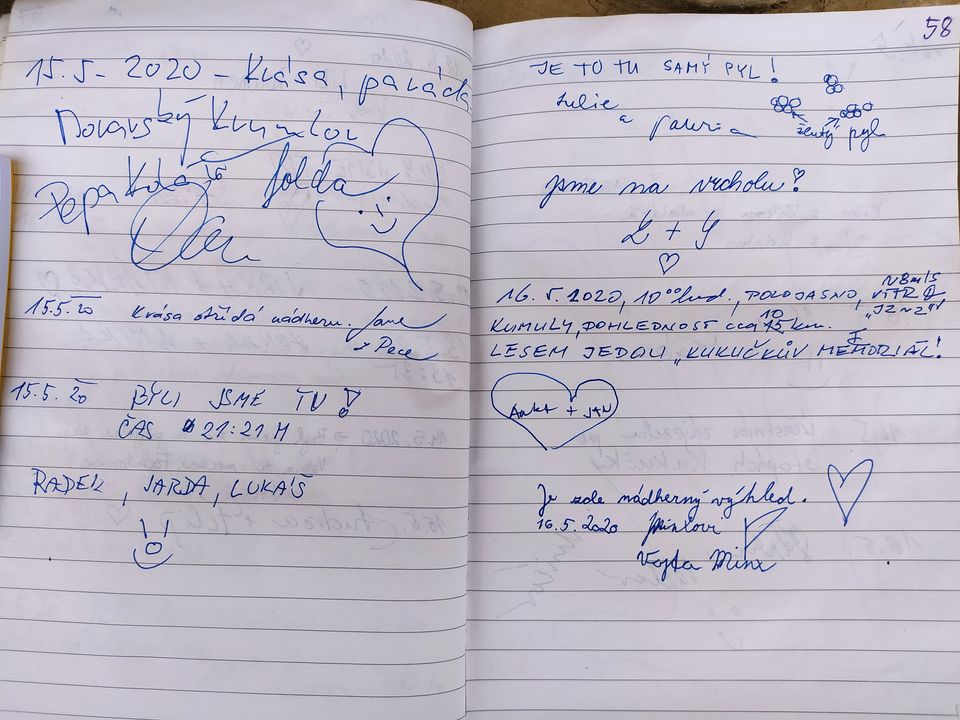 15.5-2020 - Krása, paráda
Moravský Krumlov
Pepa Jolda
15.5.20 Krása střídá nádheru. Jane
& Pece
15.5.20 BYLI JSME TU!
ČAS 21:21 H
RADEK, JARDA, LUKÁŠ
58
JE TO TU SAMÝ PYL!
Julie
a
žlutý pyl
jsme na vrcholu!
L + Y
16.5.2020, 10⁰⁰hod., POLOJASNO, VÍTR
N8m/s
"JZNZ"
KUMULY, POHLEDNOST cca 15 km.
10
LESEM JEDOU „KUKUČKŮV MEMORIÁL!
I
+ JAN
Je zde nádherný výhled.
16.5.2020
Vojta Minx